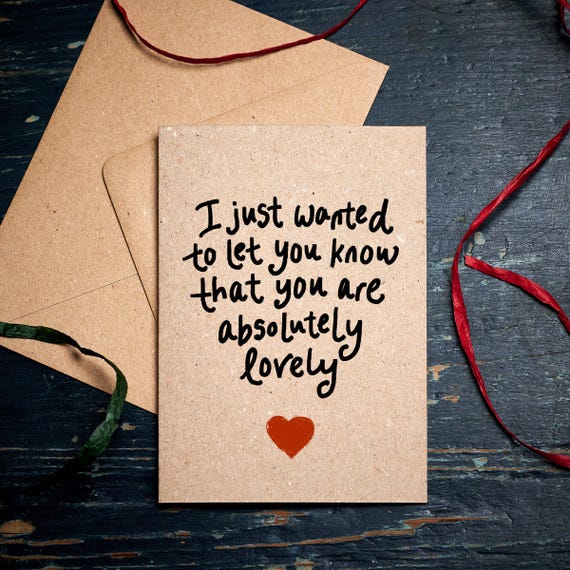 I just wanted
to let you know
that you are
absolutely
lovely